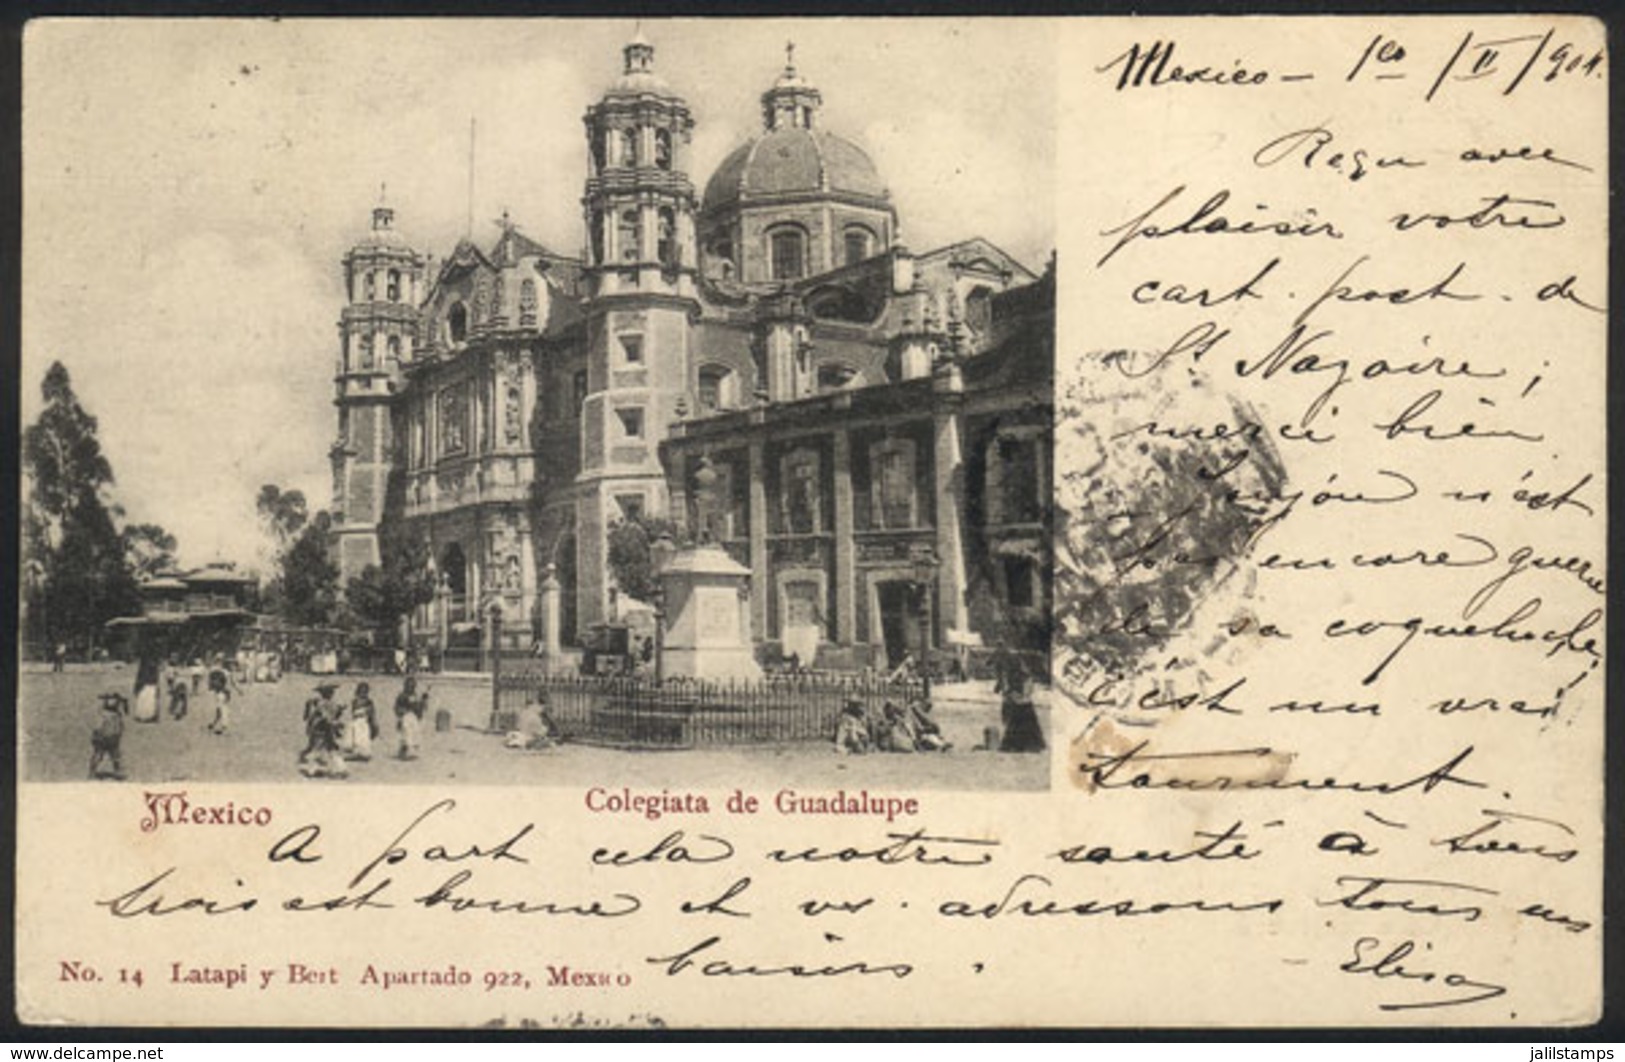 Mexico – 1er /II/904.
Reçu avec
plaisir votre
cart. post. de
St Nazaire ;
merci bien
n'est
pas encore guerie
de sa coqueluche,
c'est un vrai
tourment.
Mexico
Colegiata de Guadalupe
A part cela notre santé à tous
trois est bonne et vs. adressons tous nos
baisers.
Elisa
No. 14 Latapi y Bert Apartado 922, Mexico
www.delcampe.net
jalilstamps